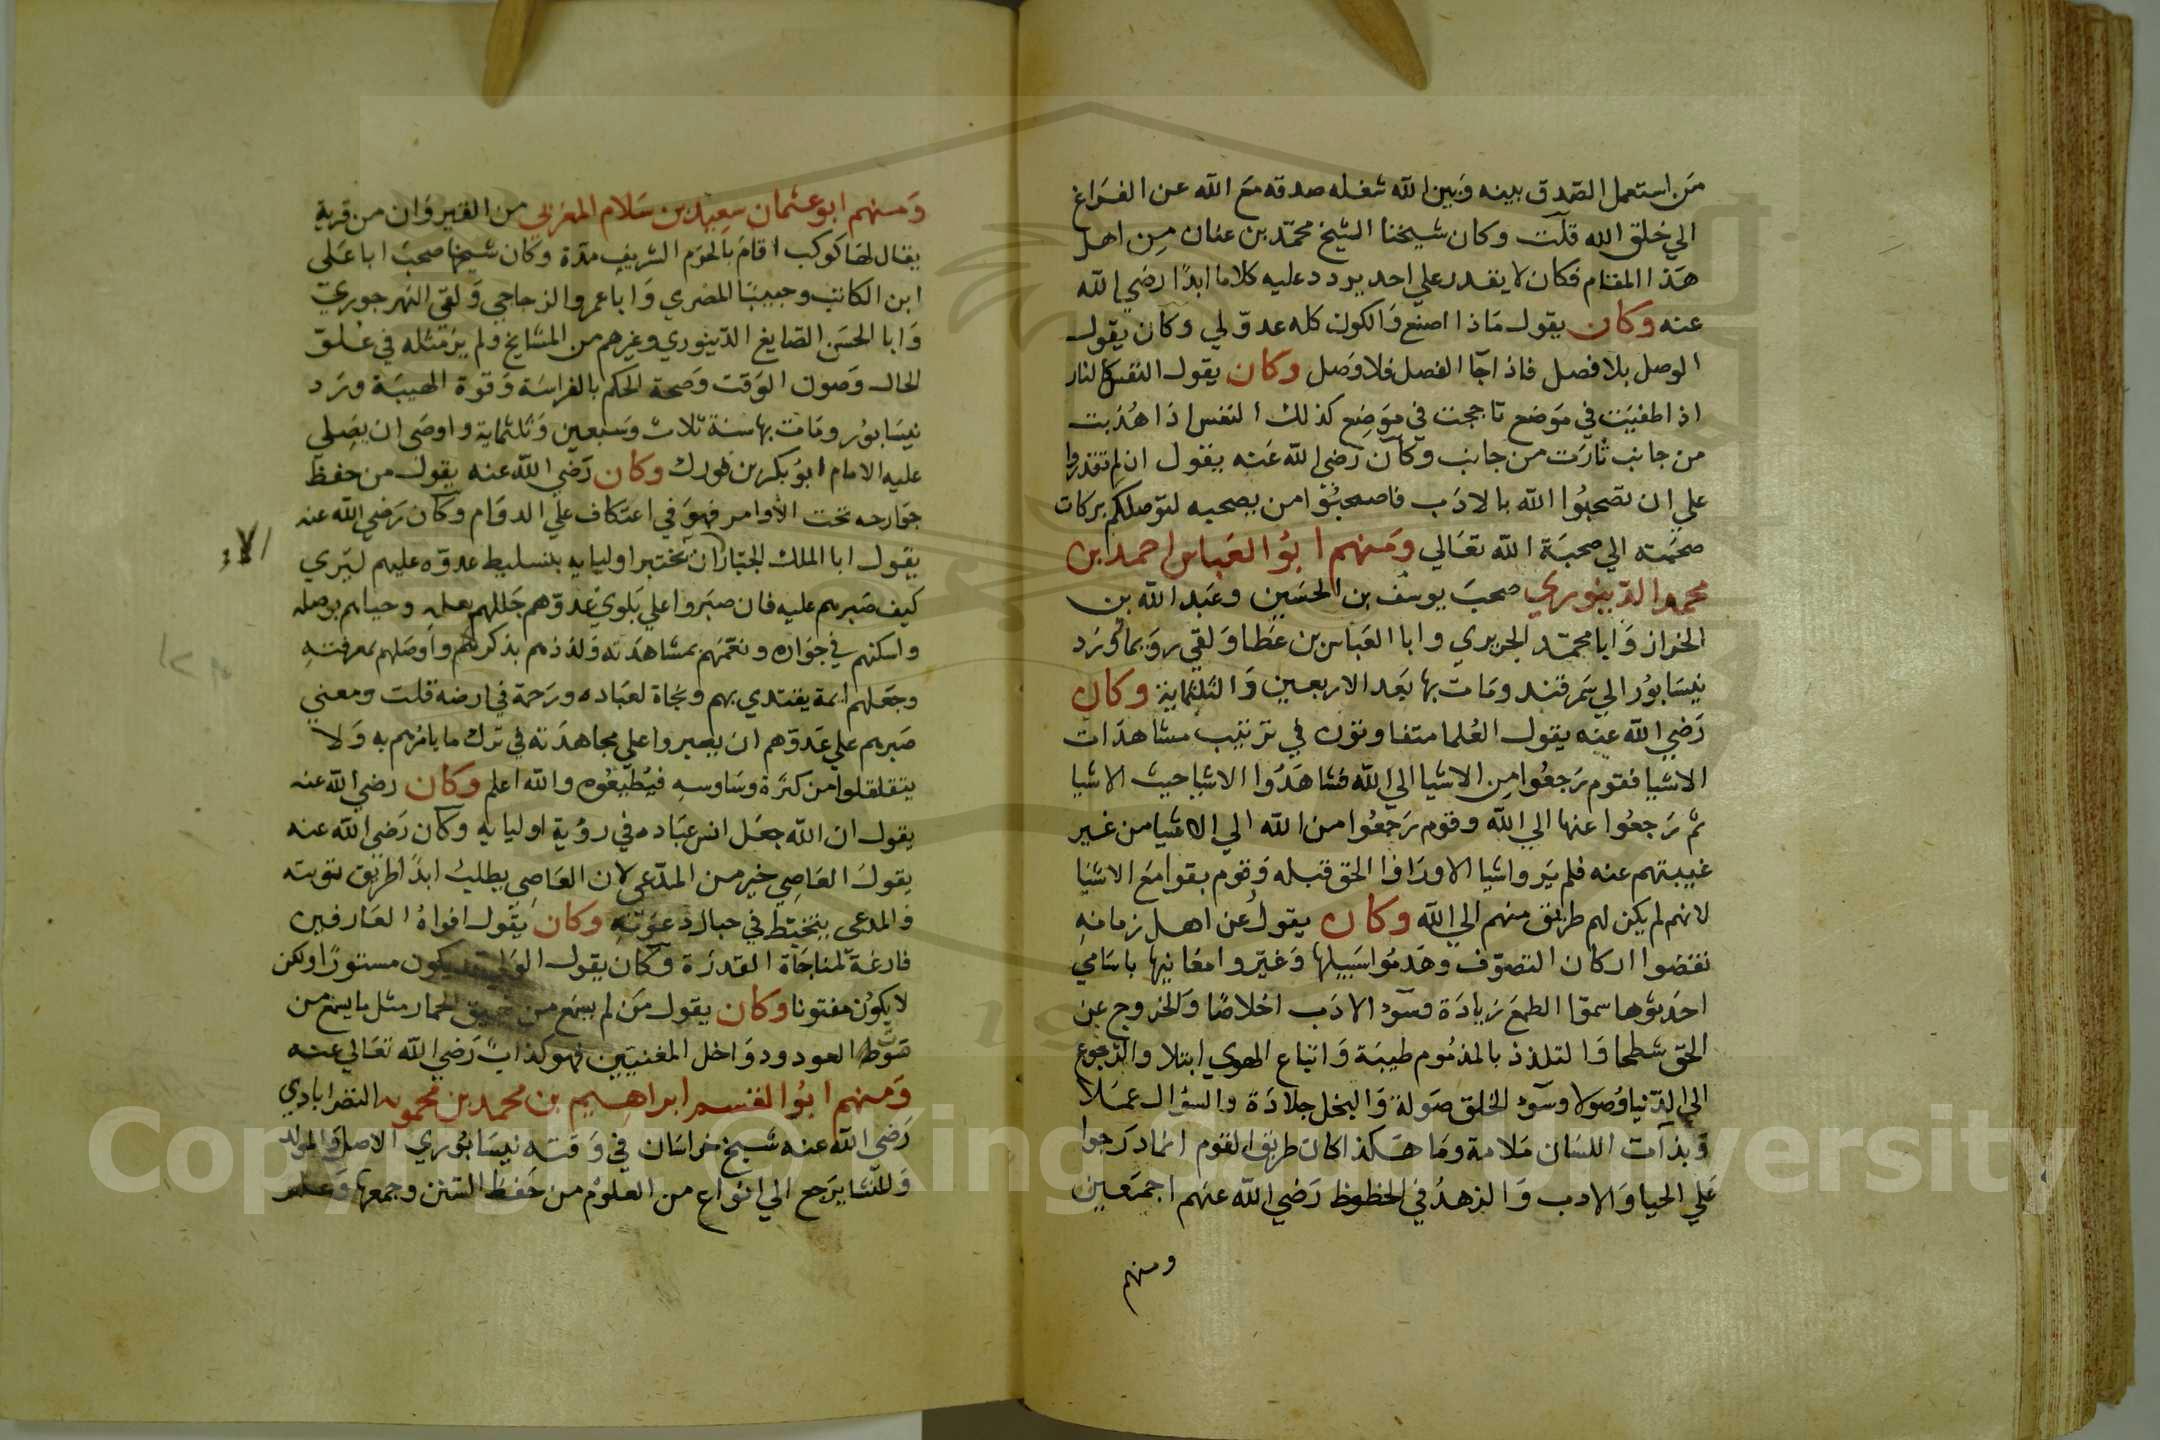 من استعمل الصدق بينه وبين الله شغله صدقه مع الله عن الفراغ
الي خلق الله قلت وكان شيخنا الشيخ محمد بن عنان من اهل
هذا المقام فكان لا يقدر علي احد يردد عليه كلاما ابدا رضي الله
عنه وكان يقول ماذا اصنع والكون كله عدو لي وكان يقول
الوصل بلا فصل فاذا جآ الفصل فلا وصل وكان يقول النفس كالنار
اذا طفيت في موضع تاججت في موضع كذلك النفس اذا هذبت
من جانب ثارت من جانب وكان رضي الله عنه يقول ان لم تقدروا
علي ان تصحبوا الله بالادب فاصحبوا من يصحبه لتوصلكم بركات
صحبته الي صحبة الله تعالي ومنهم ابو العباس احمد ابن
محمد الدينوري صحب يوسف بن الحسين وعبد الله بن
الخراز وابا محمد الجريري وابا العباس بن عطا ولقي رويما وورد
نيسابور الي سمرقند ومات بها بعد الاربعين والثلثماية وكان
رضي الله عنه يقول العلما متفاوتون في ترتيب مشاهدات
الاشيا فقوم رجعوا من الاشيا الي الله فشاهدوا الاشيا حيث الاشيا
ثم رجعوا عنها الي الله وقوم رجعوا من الله الي الاشيا من غير
غيبتهم عنه فلم يروا شيا الا وراوا الحق قبله وقوم بقوا مع الاشيا
لانهم لم يكن لهم طريق منهم الي الله وكان يقول عن اهل زمانه
نقضوا اركان التصوف وهدموا سبيلها وغيروا معانيها باسامي
احدثوها سموا الطمع زيادة وسوء الادب اخلاصا والخروج عن
الحق شطحا والتلذذ بالمذموم طيبة واتباع الهوي ابتلا والرجوع
الي الدنيا وصولا وسوء الخلق صولة والبخل جلادة والسؤال عملا
وبذآت اللسان ملامة وما هكذا كان طريق القوم انما درجوا
علي الحيا والادب والزهد في الحظوظ رضي الله عنهم اجمعين
ومنهم
ومنهم ابو عثمان سعيد بن سلام المغربي من القيروان من قرية
يقال لها كوكب اقام بالحرم الشريف مدة وكان شيخها صحب ابا علي
ابن الكاتب وحبيبا المصري وابا عمرو الزجاجي ولقي النهرجوري
وابا الحسن الصايغ الدينوري وغيرهم من المشايخ ولم ير مثله في علو
الحال وصون الوقت وصحة الحكم بالفراسة وقوة الهيبة ورد
نيسابور ومات بها سنة ثلاث وسبعين وثلثماية واوصي ان يصلي
عليه الامام ابو بكر بن فورك وكان رضي الله عنه يقول من حفظ
جوارحه تحت الاوامر فهو في اعتكاف علي الدوام وكان رضي الله عنه
يقول ابا الملك الجبار ان يختبر اوليايه بتسليط عدوه عليهم ليري
كيف صبرهم عليه فان صبروا علي بلوي عدوهم جللهم بعلمه وحياهم بوصله
واسكنهم في جواره ونعمهم بمشاهدته ولذذهم بذكره لهم واوصلهم بمعرفته
وجعلهم ايمة يقتدي بهم ونجاة لعباده ورحمة في ارضه قلت ومعني
صبرهم علي عدوهم ان يصبروا علي مجاهدته في ترك ما يامرهم به ولا
يتقلقلوا من كثرة وساوسه فيطيعوه والله اعلم وكان رضي الله عنه
يقول ان الله جعل انس عباده في رؤية اوليايه وكان رضي الله عنه
يقول العاصي خير من المدعي لان العاصي يطلب ابدا طريق توبته
والمدعي يتخبط في حبال دعوته وكان يقول افواه العارفين
فارغة لمناجاة القدرة وكان يقول الولي قد يكون مستورا ولكن
لا يكون مفتونا وكان يقول من لم يسمع من نهيق الحمار مثل ما يسمع من
صوت العود ودواخل المغنيين فهو كذاب رضي الله تعالي عنه
ومنهم ابو القسم ابراهيم بن محمد بن محمويه النصرابادي
رضي الله عنه شيخ خراسان في وقته نيسابوري الاصل والمولد
والمنشا يرجع الي انواع من العلوم من حفظ السنن وجمعها وعلم
Copyright © King Saud University